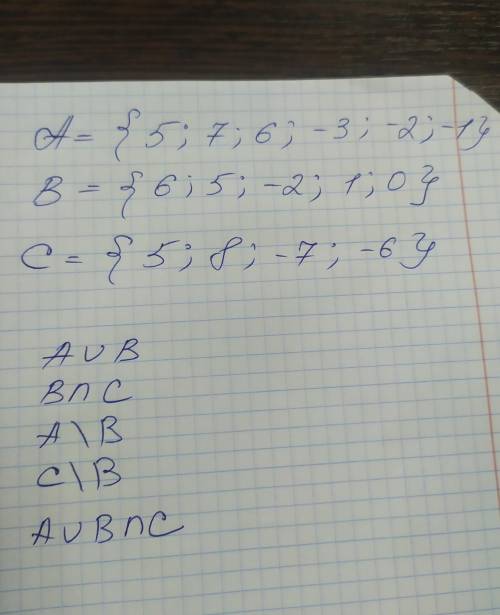 A = { 5; 7; 6; -3; -2; -1}
B = { 6; 5; -2; 1; 0}
C = { 5; 8; -7; -6}
A∪B
B∩C
A\B
C\B
A∪B∩C